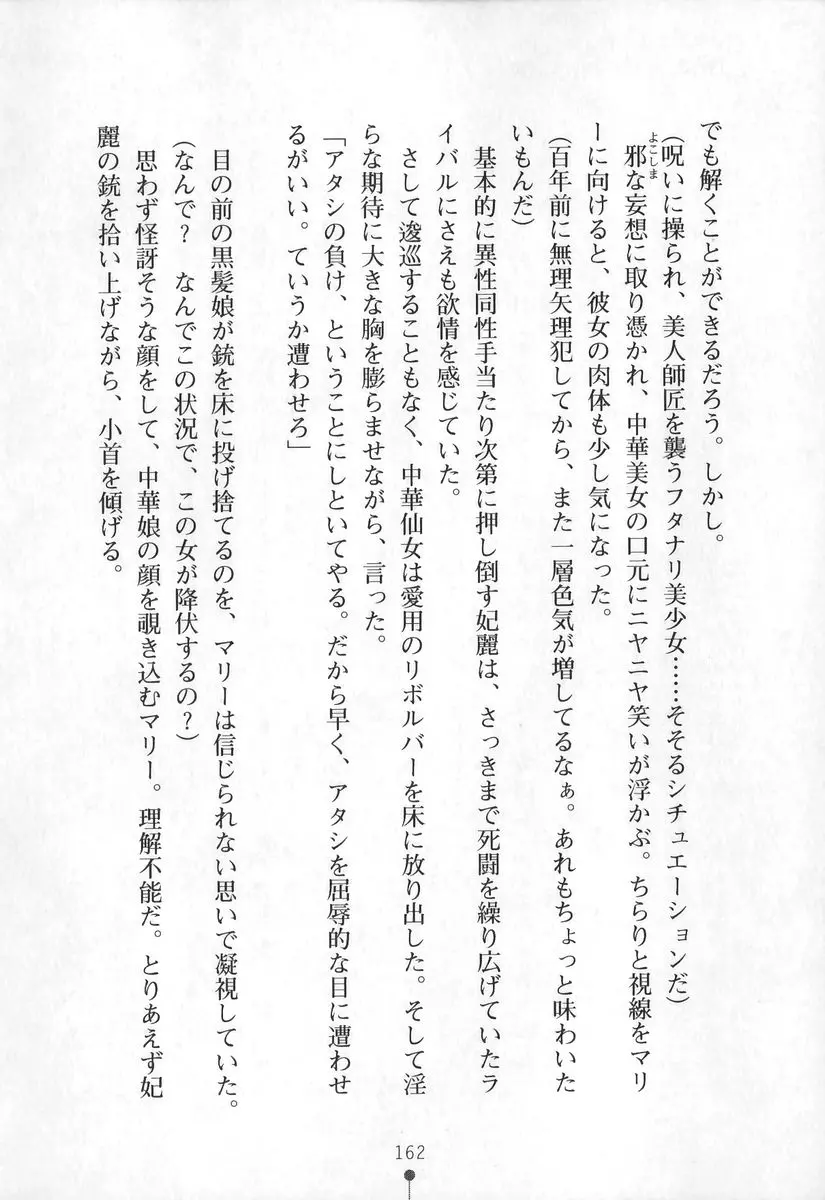 でも解くことができるだろう。しかし。
(呪いに操られ、美人師匠を襲うフタナリ美少女……そそるシチュエーションだ)
邪な妄想に取り憑かれ、中華美女の口元にニヤニヤ笑いが浮かぶ。ちらりと視線をマリ
よこしま
ーに向けると、彼女の肉体も少し気になった。
(百年前に無理矢理犯してから、また一層色気が増してるなぁ。あれもちょっと味わいた
いもんだ)
基本的に異性同性手当たり次第に押し倒す妃麗は、さっきまで死闘を繰り広げていたラ
イバルにさえも欲情を感じていた。
さして逡巡することもなく、中華仙女は愛用のリボルバーを床に放り出した。そして淫
らな期待に大きな胸を膨らませながら、言った。
「アタシの負け、ということにしといてやる。だから早く、アタシを屈辱的な目に遭わせ
るがいい。ていうか遭わせろ」
目の前の黒髪娘が銃を床に投げ捨てるのを、マリーは信じられない思いで凝視していた。
(なんで? なんでこの状況で、この女が降伏するの?)
思わず怪訝そうな顔をして、中華娘の顔を覗き込むマリー。理解不能だ。とりあえず妃
麗の銃を拾い上げながら、小首を傾げる。
162